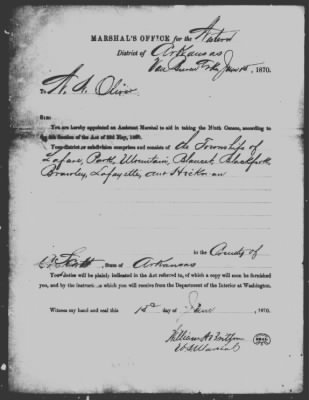 MARSHAL'S OFFICE for the Western
District of Arkansas
Van Buren Ark June 1st, 1870.
To
Sir:
You are hereby appointed an Assistant Marshal to aid in taking the Ninth Census, according to
the Section of the Act of 23d May, 1850.
Your district or subdivision comprises and consists of the Township of
Park, Mountain,
Lafayette, and Hickman
in the County of
Scott, State of Arkansas
Your duties will be plainly indicated in the Act referred to, of which a copy will soon be furnished
you, and by the instructions which you will receive from the Department of the Interior at Washington.
Witness my hand and seal this 1st day of June, 1870.
William A.
U.S. Marshal
SEAL